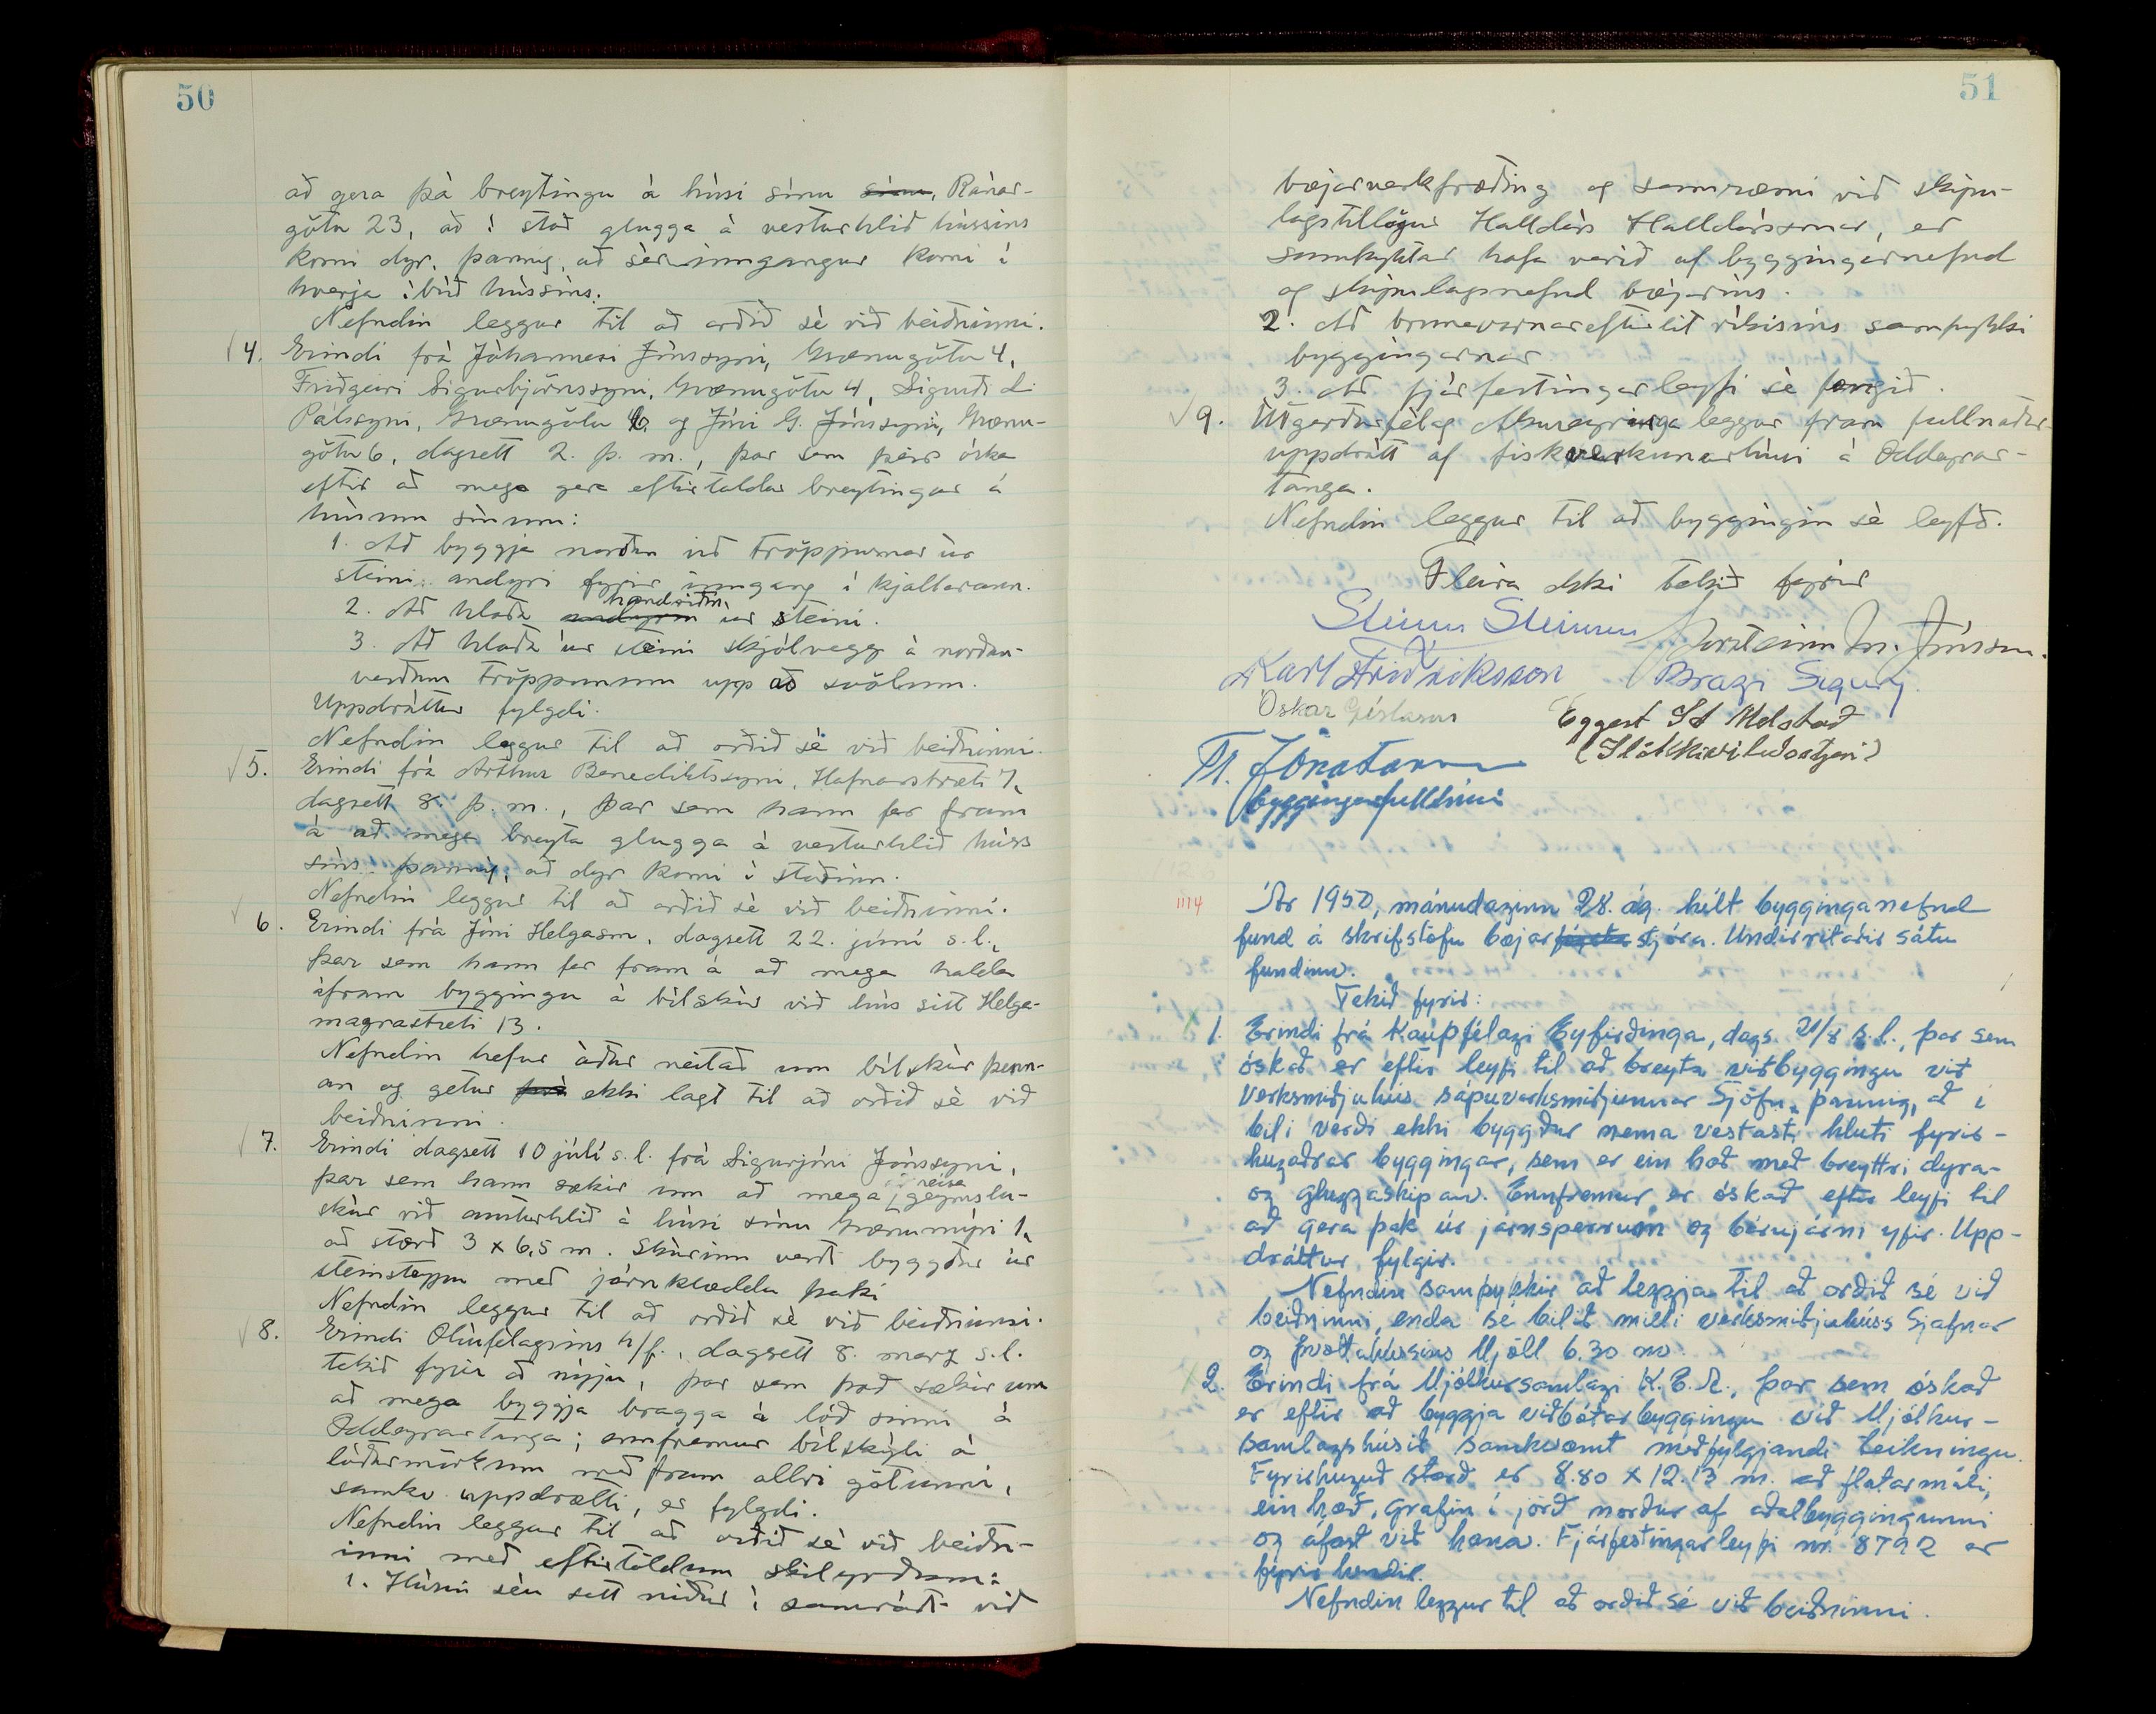 50
að gera þá breytingu á húsi sínu sínu, Ránar-
götu 23, að í stað glugga á vesturhlið hússins
komi dyr, þannig, að sérinngangur komi í
hverja íbúð hússins.
Nefndin leggur til að orðið sé við beiðninni.
4. Erindi frá Jóhannesi Jónssyni, Grænugötu 4,
Friðgeiri Sigurbjörnssyni, Grænugötu 4, Sigurði L.
Pálssyni, Grænugötu 6 og Jóni G. Jónssyni, Grænu-
götu 6, dagsett 2. þ. m., þar sem þeir óska
eftir að mega gera eftirtaldar breytingar á
húsum sínum:
1. Að byggja norðan við tröppurnar úr
steini andyri fyrir inngang í kjallarann.
handriðin
2. Að hlaða andyrin úr steini.
3. Að hlaða úr steini skjólvegg á norðan-
verðum tröppunum upp að svölum.
Uppdráttur fylgdi.
Nefndin leggur til að orðið sé við beiðninni.
5. Erindi frá Arthur Benediktssyni, Hafnarstræti 7,
dagsett 8. þ. m., þar sem hann fer fram
á að mega breyta glugga á vesturhlið húss
síns þannig, að dyr komi í staðinn.
Nefndin leggur til að orðið sé við beiðninni.
6. Erindi frá Jóni Helgasm, dagsett 22. júní s.l.,
þar sem hann fer fram á að mega halda
áfram byggingu á bílskúr við hús sitt Helga-
magrastræti 13.
Nefndin hefur áður neitað um bílskúr þenn-
an og getur því ekki lagt til að orðið sé við
beiðninni.
7. Erindi dagsett 10 júlí s.l. frá Sigurjóni Jónssyni,
reisa
þar sem hann sækir um að mega geymslu-
skúr við austurhlið á húsi sínu Grænumýri 1,
að stærð 3 x 6,5 m. Skúrinn verði byggður úr
steinsteypu með járnklæddu þaki
Nefndin leggur til að orðið sé við beiðninni.
8. Erindi Olíufélagsins h/f., dagsett 8. marz s.l.
tekið fyrir að nýju, þar sem það sækir um
að mega byggja bragga á lóð sinni á
Oddeyrartanga; ennfremur bílskýli á
lóðarmörkum með fram allri götunni,
samkv. uppdrætti, er fylgdi.
Nefndin leggur til að orðið sé við beiðn-
inni með eftirtöldum skilyrðum:
1. Húsin séu sett niður í samráði við
51
bæjarverkfræðing og samræmi við skipu-
lagstillögur Halldórs Halldórssonar, er
samþykktar hafa verið af byggingarnefnd
og skipulagsnefnd bæjarins.
2. Að brunavarnareftirlit ríkisins samþykki
byggingarnar.
3. Að fjárfestingarleyfi sé fengið.
9. Útgerðarfélag Akureyringa leggur fram fullnaðar-
uppdrátt af fiskverkunarhúsi á Oddeyrar-
tanga.
Nefndin leggur til að byggingin sé leyfð.
Fleira ekki tekið fyrir
Steinn Steinsen Þorsteinn M. Jónsson.
Karl Friðriksson Bragi Sigurj.
Óskar Gíslason Eggert St Melstað
(Slökkviliðsstjóri)
Tr. Jónatansson
byggingafulltrúi
1114 Ár 1950, mánudaginn 28. ág. hélt bygginganefnd
fund á skrifstofu bæjarfógeta stjóra. Undirritaðir sátu
fundinn.
Tekið fyrir:
1. Erindi frá Kaupfélagi Eyfirðinga, dags. 21/8 s.l., þar sem
óskað er eftir leyfi til að breyta viðbyggingu við
verksmiðjuhús sápuverksmiðjunnar Sjöfn, þannig, að í
bili verði ekki byggður nema vestasti hluti fyrir-
hugaðrar byggingar, sem er ein hæð með breyttri dyra-
og gluggaskipan. Ennfremur er óskað eftir leyfi til
að gera þak úr járnsperrum og bárujárni yfir. Upp-
dráttur fylgir.
Nefndin samþykkir að leggja til að orðið sé við
beiðninni, enda sé bilið milli verksmiðjuhúss Sjafnar
og þvottahússins Mjöll 6.30 m.
2. Erindi frá Mjólkursamlagi K.E.A., þar sem óskað
er eftir að byggja viðbótarbyggingu við Mjólkur-
samlagshúsið samkvæmt meðfylgjandi teikningu.
Fyrirhuguð stærð er 8.80 x 12.13 m. að flatarmáli,
ein hæð, grafin í jörð norður af aðalbyggingunni
og áfast við hana. Fjárfestingarleyfi nr. 8792 er
fyrir hendi.
Nefndin leggur til að orðið sé við beiðninni.